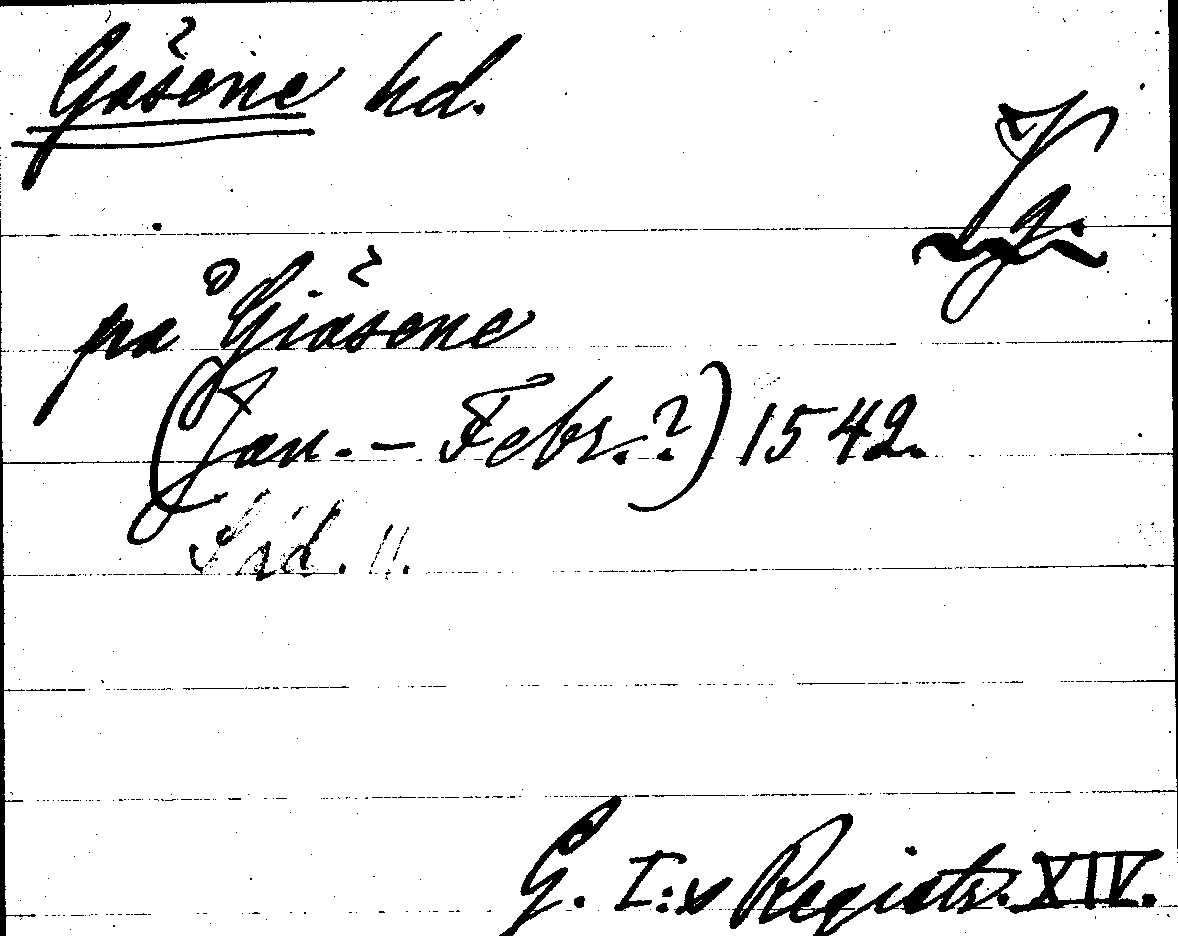 Gäsene hd.
Vg.
på Giäsene
(Jan. – Febr.?) 1542.
Sid. 11.
G. I:s Registr. XIV.